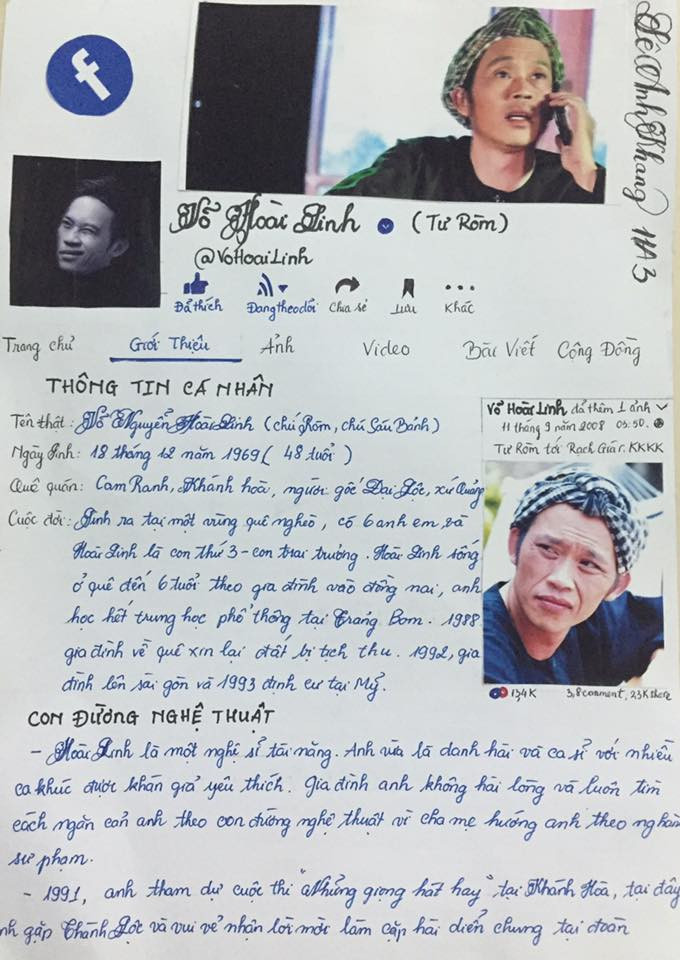 f
Lê Anh Khang 11A3
Võ Hoài Linh (Tư Ròm)
@VoHoaiLinh
Đã thích Đang theo dõi Chia sẻ Lưu Khác
Trang chủ Giới Thiệu Ảnh Video Bài Viết Cộng Đồng
THÔNG TIN CÁ NHÂN
Tên thật: Võ Nguyễn Hoài Linh (chú Ròm, chú Sáu Bảnh)
Ngày sinh: 18 tháng 12 năm 1969 ( 48 tuổi )
Quê quán: Cam Ranh, Khánh hoà, người gốc Đại Lộc, xứ Quảng
Cuộc đời: Sinh ra tại một vùng quê nghèo, có 6 anh em và
Hoài Linh là con thứ 3 - con trai trưởng. Hoài Linh sống
ở quê đến 6 tuổi theo gia đình vào đồng nai, anh
học hết trung học phổ thông tại Trảng Bom. 1988
gia đình về quê xin lại đất bị tịch thu. 1992, gia
đình lên sài gòn và 1993 định cư tại Mỹ.
Võ Hoài Linh đã thêm 1 ảnh
11 tháng 9 năm 2008 05:50.
Tư Ròm tới Rạch Giá r. KKKK
134K 3,8 comment, 23K share
CON ĐƯỜNG NGHỆ THUẬT
- Hoài Linh là một nghệ sĩ tài năng. Anh vừa là danh hài và ca sĩ với nhiều
ca khúc được khán giả yêu thích. Gia đình anh không hài lòng và luôn tìm
cách ngăn cản anh theo con đường nghệ thuật vì cha mẹ hướng anh theo nghành
sư phạm.
- 1991, anh tham dự cuộc thi "Những giọng hát hay" tại Khánh Hòa, tại đây
anh gặp Thành Lộc và vui vẻ nhận lời mời làm cặp hài diễn chung tại đoàn